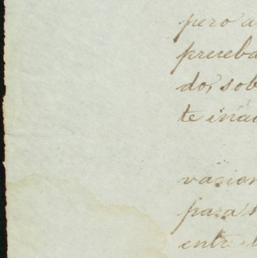 pero a
prueba
dos sob
te ina
vacion
para s
entre